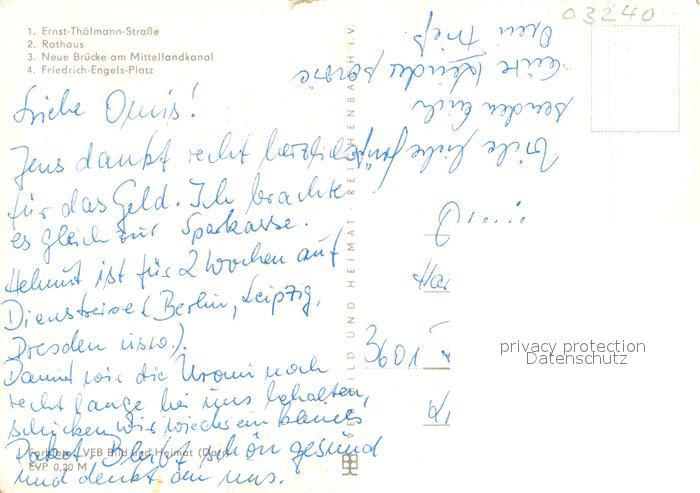 03240
1. Ernst-Thälmann-Straße
2. Rathaus
3. Neue Brücke am Mittellandkanal
4. Friedrich-Engels-Platz
Liebe Omis!
Jens dankt recht herzlich
für das Geld. Ich brachte
es gleich zur Sparkasse.
Helmut ist für 2 Wochen auf
Dienstreise (Berlin, Leipzig,
Dresden usw.).
Damit wir die Uromi noch
recht lange bei uns behalten,
schicken wir wieder ein kleines
Paket. Bleibt schön gesund
und denkt an uns.
Viele liebe Grüße
senden Euch
Eure Kinder sowie
VEB Bild und Heimat
EVP 0,20 M
VEB BILD UND HEIMAT REICHENBACH I. V.
3601
privacy protection
Datenschutz